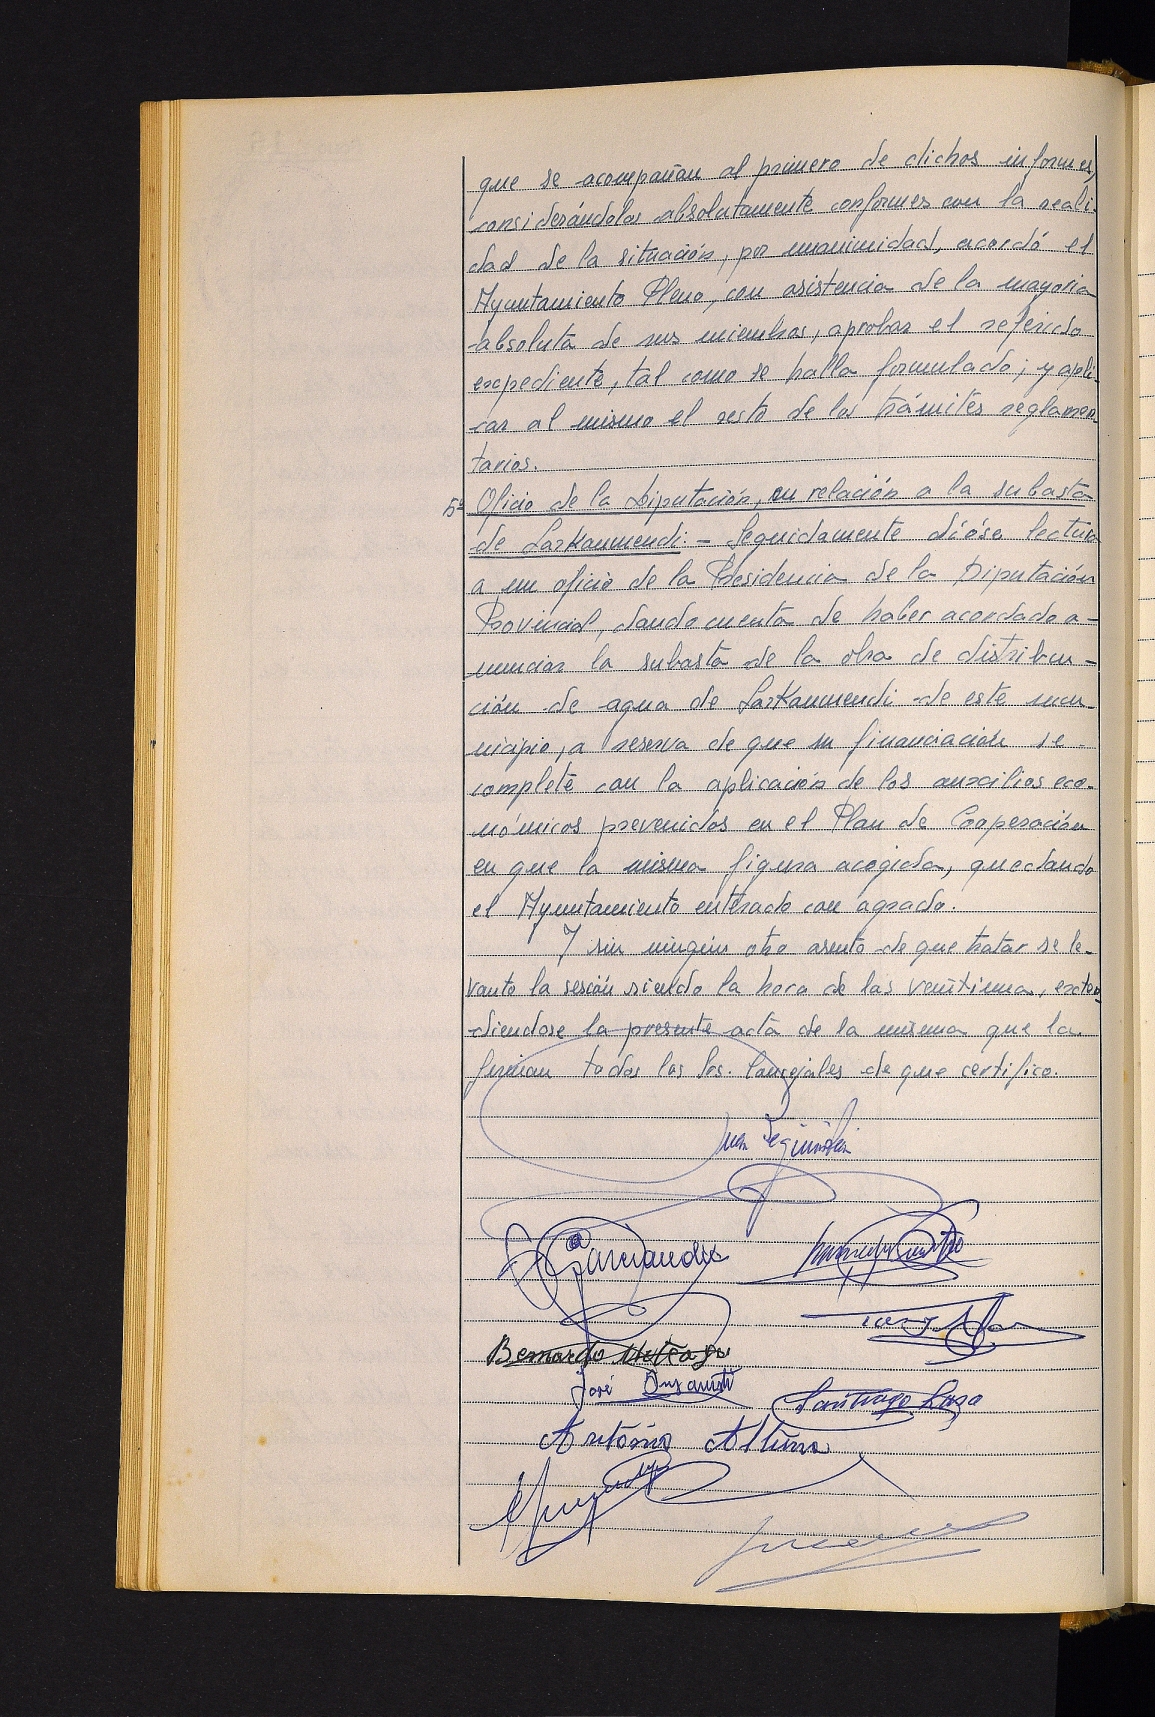 que se acompañan al primero de dichos informes,
considerándolos absolutamente conformes con la reali-
dad de la situación, por unanimidad, acordó el
Ayuntamiento Pleno, con asistencia de la mayoria
absoluta de sus miembros, aprobar el referido
expediente, tal como se halla formulado; y apli-
car al mismo el resto de los trámites reglamen-
tarios.
5º Oficio de la Diputación, en relación a la subasta
de Lazkaumendi: - Seguidamente dióse lectura
a un oficio de la Presidencia de la Diputación
Provincial, dando cuenta de haber acordado a-
nunciar la subasta de la obra de distribu-
ción de agua de Lazkaumendi de este mu-
nicipio, a reserva de que su financiación se
complete con la aplicación de los auxilios eco-
nómicos prevenidos en el Plan de Cooperación
en que la misma figura acogida, quedando
el Ayuntamiento enterado con agrado.
Y sin ningún otro asunto de que tratar se le-
vanto la sesión siendo la hora de las veintiuna, exten-
diendose la presente acta de la misma que la
firman todos los Srs. Concejales de que certifico.
Juan
Garciandia
Bernardo
José
Santiago Lasa
Antonio Altuna